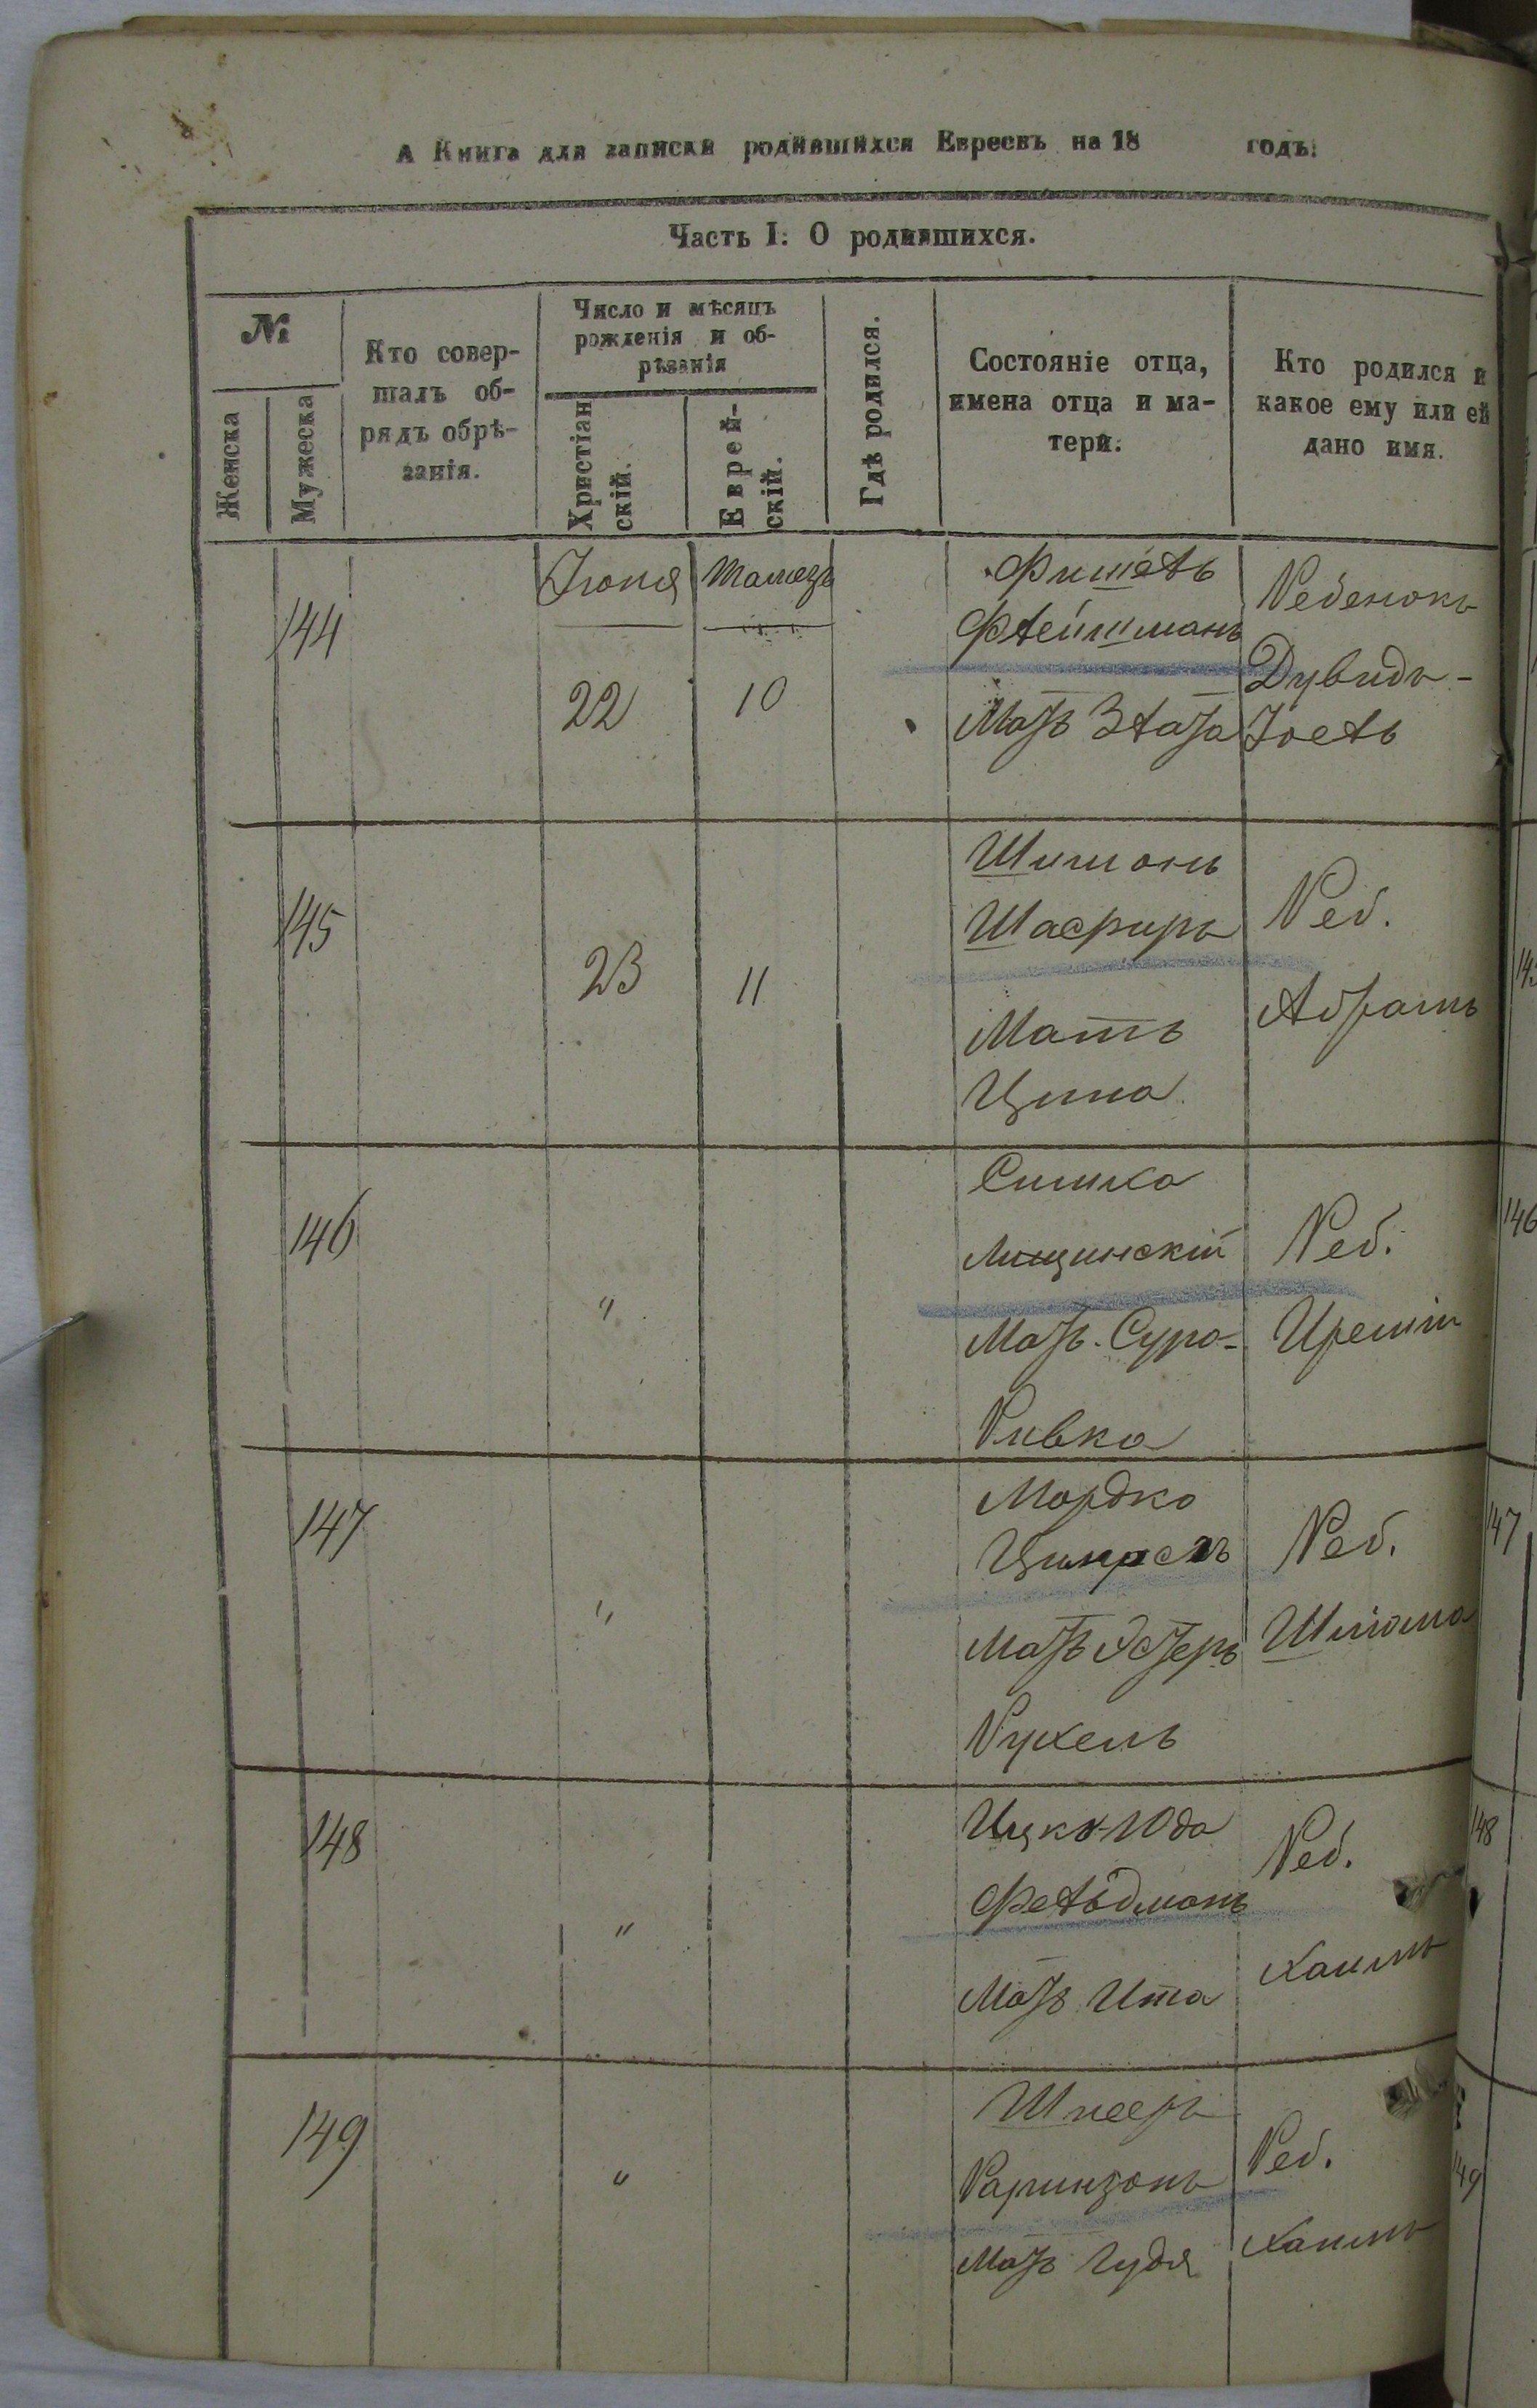 А Книга для записки родившихся Евреевъ на 18 годъ:
Часть I: О родившихся.
№
Женска
Мужеска
Кто совер-
шалъ об-
рядъ обрѣ-
занія.
Число и мѣсяцъ
рожденія и об-
рѣзанія
Христіан
скій.
Еврей-
скій.
Гдѣ родился.
Состояніе отца,
имена отца и ма-
тери.
Кто родился и
какое ему или ей
дано имя.
144
Іюня
22
Тамезъ
10
Фишель
Флейшманъ
Мать Злата
Ребенокъ
Дувидъ-
Іоель
145
23
11
Шимонъ
Шафиръ
Мать
Цина
Реб.
Абрамъ
146
"
Симха
Лищинскій
Мать Сура-
Ривка
Реб.
147
"
Мордко
Мать Эстеръ
Рухель
Реб.
Шлома
148
"
Ицко-Юда
Фельдманъ
Мать Ита
Реб.
Хаимъ
149
"
Шнееръ
Мать Гудя
Реб.
Хаимъ
145
146
147
148
149